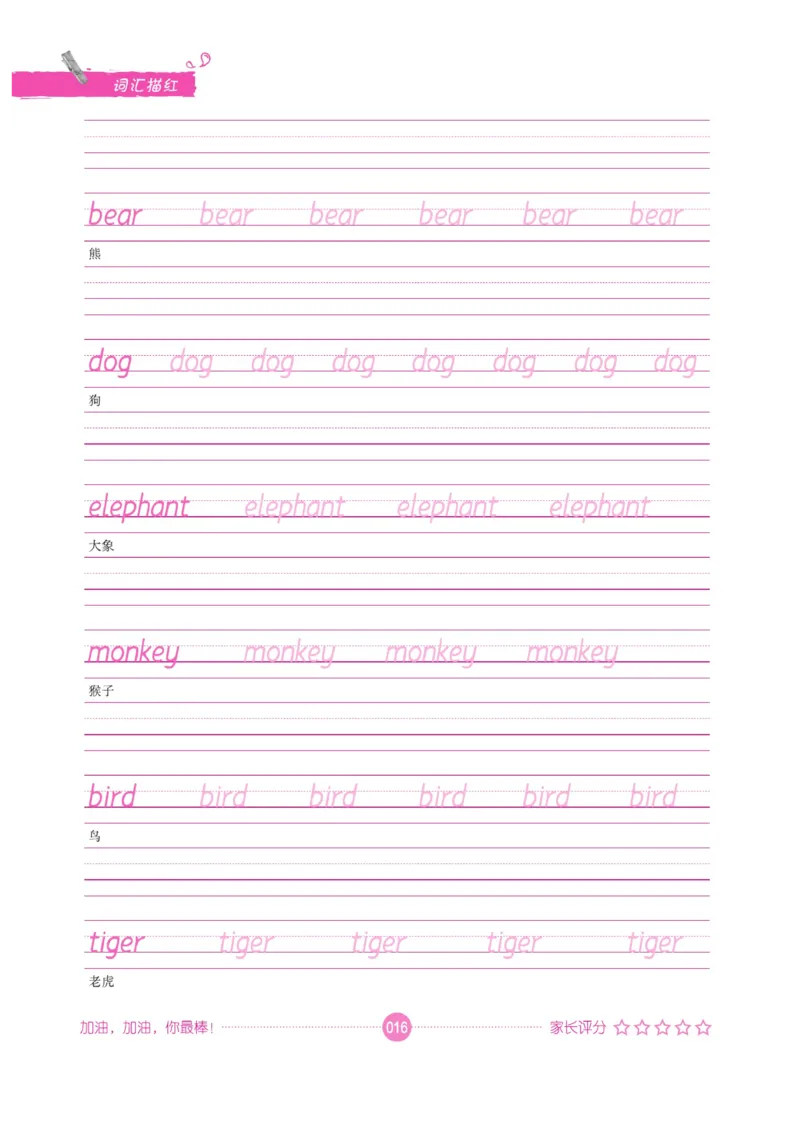 词汇描红
bear bear bear bear bear bear
熊
dog dog dog dog dog dog dog dog
狗
elephant elephant elephant elephant
大象
monkey monkey monkey monkey
猴子
bird bird bird bird bird bird
鸟
tiger tiger tiger tiger tiger
老虎
加油，加油，你最棒！ 016 家长评分 ☆☆☆☆☆